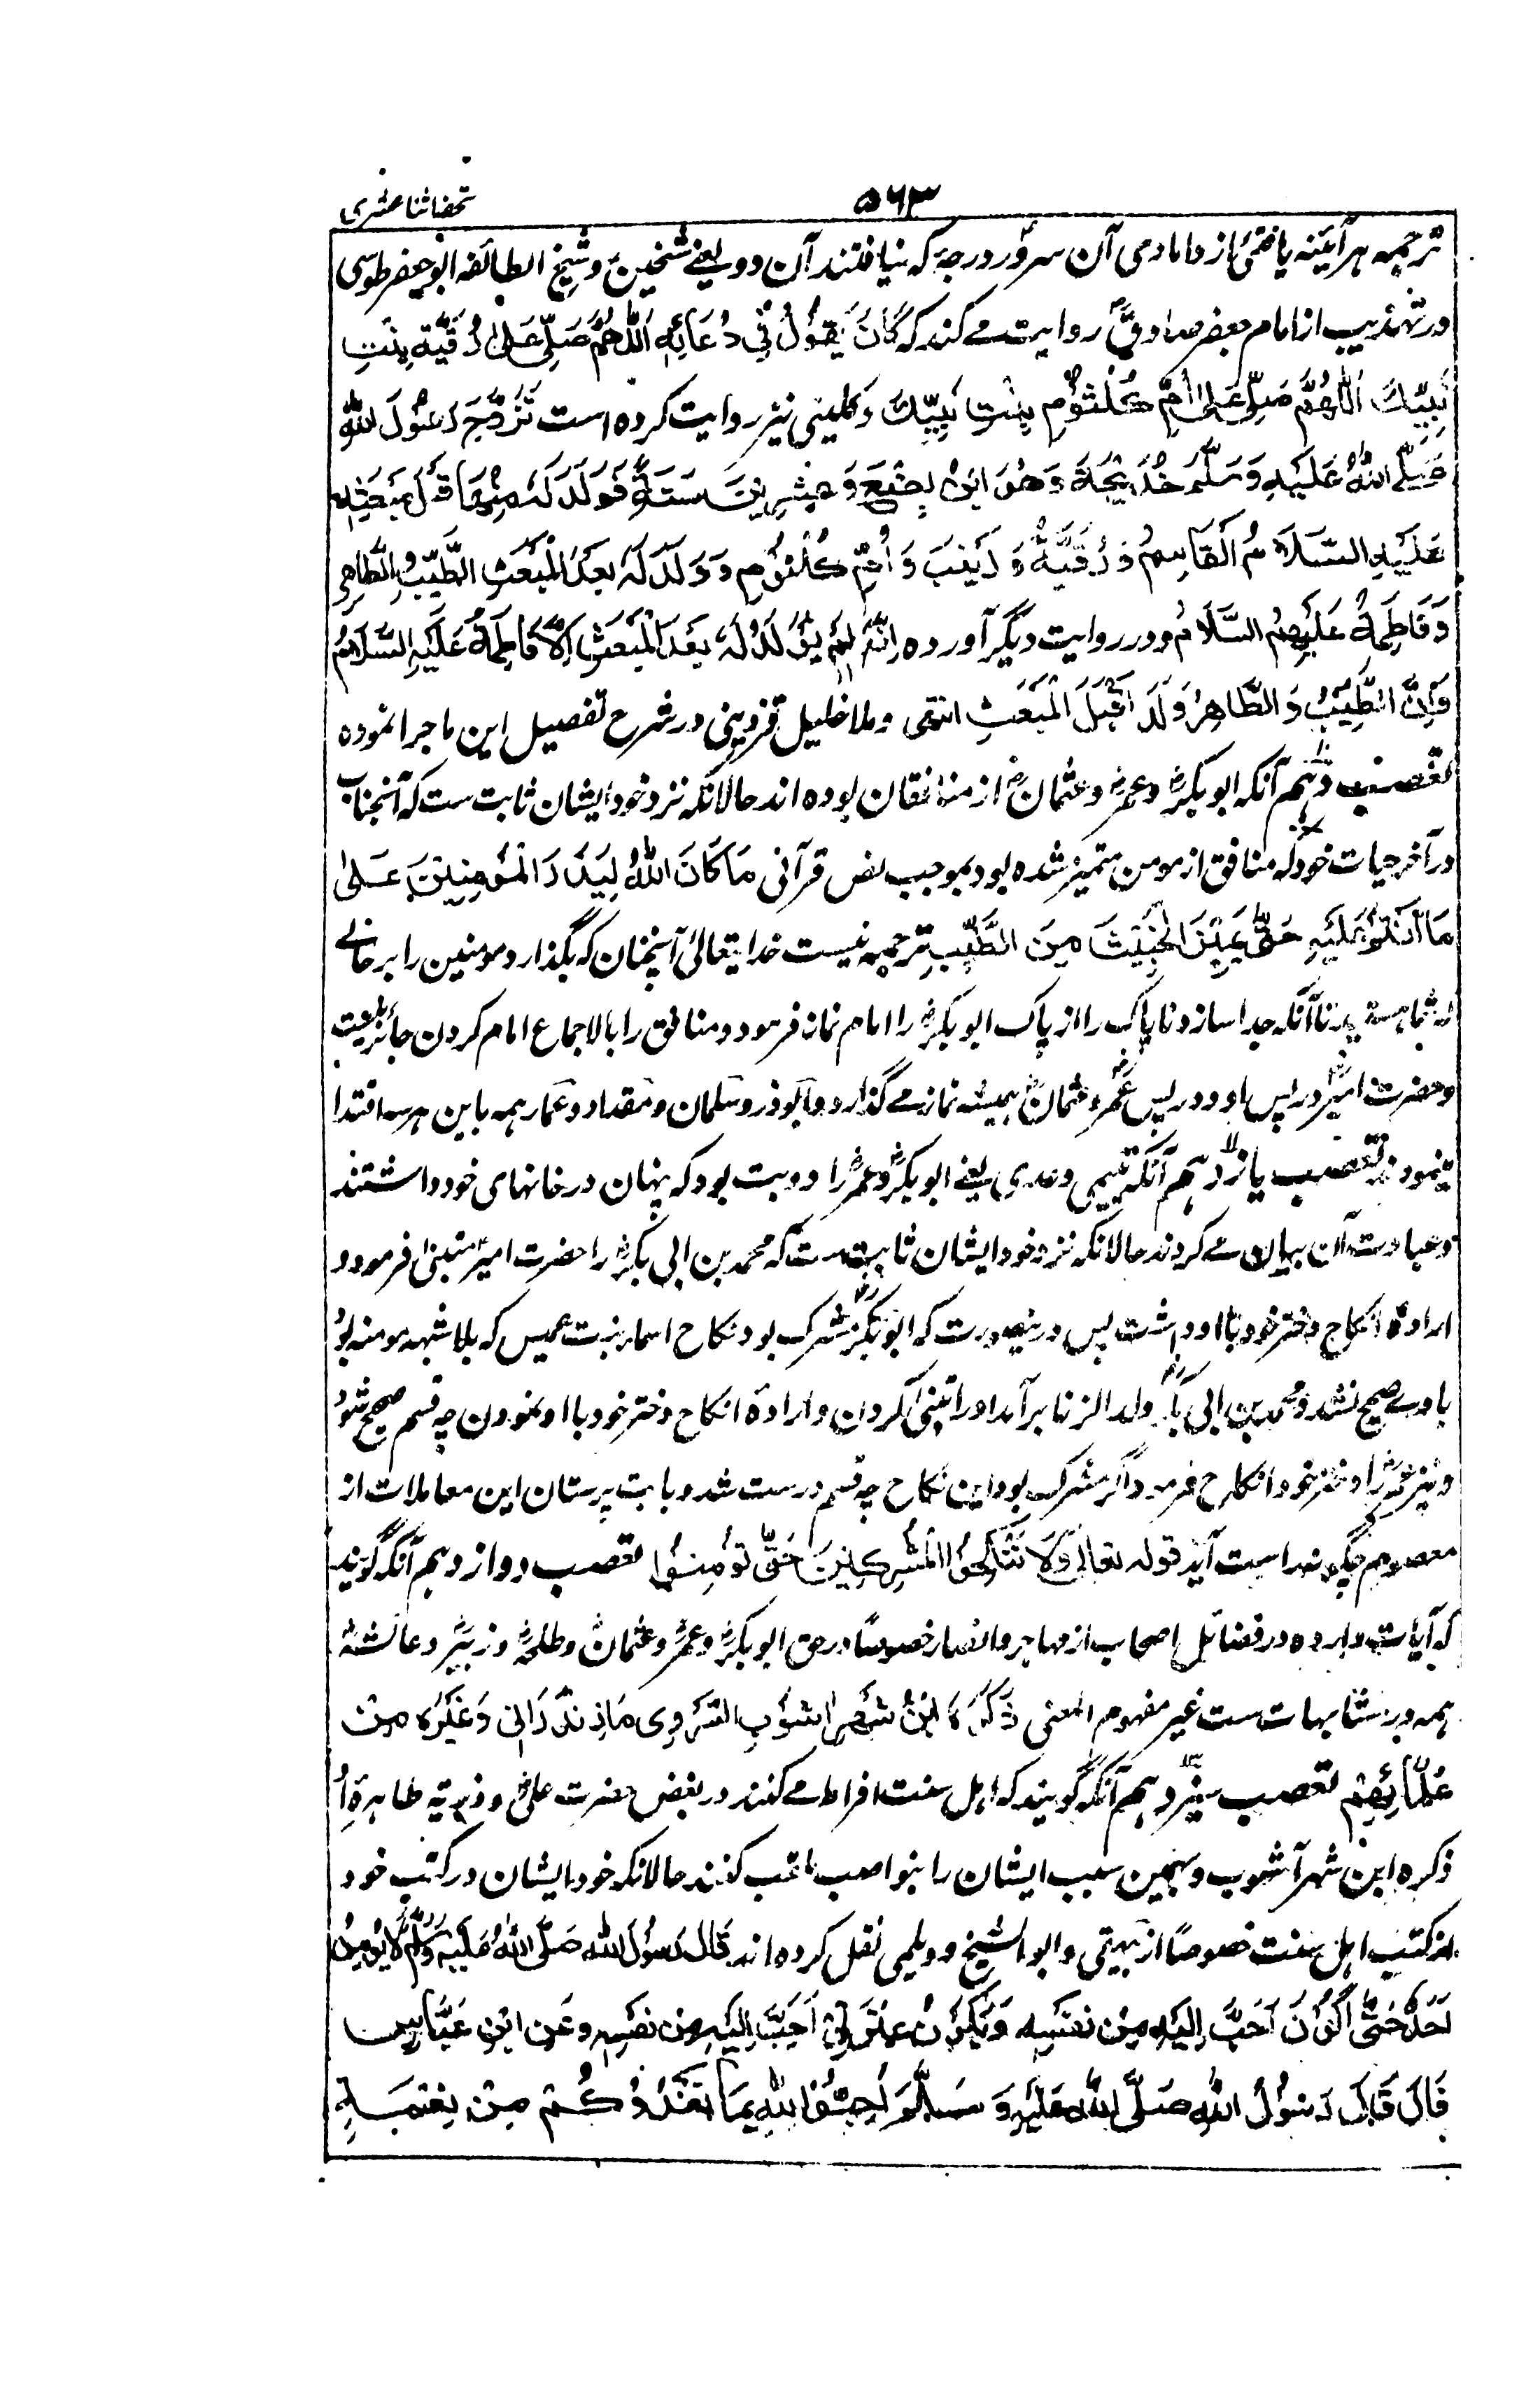 تحفہ اثنا عشری
۵۶۳
ترجمہ ہر آئینہ یافتئی از دامادی آن سرور درجہ کہ نیافتند آن دو یعنے شیخین و شیخ الطائفہ ابو جعفر طوسی
در تہذیب از امام جعفر صادق روایت مے کند کہ كَانَ يَقُوْلُ فِيْ دُعَائِهِ اَللّٰهُمَّ صَلِّ عَلىٰ رُقَيَّةَ بِنْتِ
نَبِيِّكَ اَللّٰهُمَّ صَلِّ عَلىٰ اُمِّ كُلْثُوْمٍ بِنْتِ نَبِيِّكَ و کلینی نیز روایت کردہ است تَزَوَّجَ رَسُوْلُ اللّٰهِ
صَلَّى اللّٰهُ عَلَيْهِ وَسَلَّمَ خَدِيْجَةَ وَهُوَ ابْنُ بِضْعٍ وَعِشْرِيْنَ سَنَةً فَوُلِدَ لَهٗ مِنْهَا قَبْلَ مَبْعَثِهِ
عَلَيْهِ السَّلَامُ الْقَاسِمُ وَرُقَيَّةُ وَزَيْنَبُ وَاُمُّ كُلْثُوْمٍ وَوُلِدَ لَهٗ بَعْدَ الْمَبْعَثِ الطَّيِّبُ وَالطَّاهِرُ
وَفَاطِمَةُ عَلَيْهِمُ السَّلَامُ و در روایت دیگر آوردہ اِنَّهٗ لَمْ يُوْلَدْ لَهٗ بَعْدَ الْمَبْعَثِ اِلَّا فَاطِمَةُ عَلَيْهَا السَّلَامُ
وَاِنَّ الطَّيِّبَ وَالطَّاهِرَ وُلِدَا قَبْلَ الْمَبْعَثِ انتهى و ملا خلیل قزوینی در شرح تفصیل این ماجرا نمودہ
تعصب دہم آنکہ ابو بکر و عمر و عثمان از منافقان بودہ اند حالانکہ نزد خود ایشان ثابت ست کہ آنجناب
در آخر حیات خود کہ منافق از مومن متمیز شدہ بود بموجب نص قرآنی مَا كَانَ اللّٰهُ لِيَذَرَ الْمُؤْمِنِيْنَ عَلىٰ
مَا اَنْتُمْ عَلَيْهِ حَتّٰى يَمِيْزَ الْخَبِيْثَ مِنَ الطَّيِّبِ ترجمہ نیست خدایتعالیٰ آنچنان کہ بگذارد مومنین را بر حالے
کہ شما ہستید تا آنکہ جدا سازد ناپاک را از پاک ابو بکر را امام نماز فرمود و منافق را بالاجماع امام کردن جائز نیست
و حضرت امیر در پس او و در پس عمر و عثمان ہمیشہ نماز مے گذارد و ابوذر و سلمان و مقداد و عمار ہمہ باین ہرسہ اقتدا
مینمودند تعصب یازدہم آنکہ تیمی و عدی یعنے ابو بکر و عمر را دو بت بود کہ پنہان در خانہای خود داشتند
و عبادت آن بتان مے کردند حالانکہ نزد خود ایشان ثابت ست کہ محمد بن ابی بکر را حضرت امیر متبنی فرمود و
ارادۂ انکاح دختر خود با او داشت پس درینصورت کہ ابو بکر مشرک بود نکاح اسماء بنت عمیس کہ بلا شبہہ مومنہ بود
با وے صحیح نشد و محمد بن ابی بکر ولد الزنا برآمد اورا متبنیٰ کردن و ارادۂ انکاح دختر خود با او نمودن چہ قسم صحیح شود
و نیز عمر را دختر خود انکاح فرمود اگر مشرک بود این نکاح چہ قسم درست شد و با بت پرستان این معاملات از
معصوم چگونہ راست آید قولہ تعالیٰ وَلَا تُنْكِحُوا الْمُشْرِكِيْنَ حَتّٰى يُؤْمِنُوْا تعصب دوازدہم آنکہ گویند
کہ آیات واردہ در فضائل اصحاب از مہاجر و انصار خصوصًا در حق ابو بکر و عمر و عثمان و طلحہ و زبیر و عائشہ
ہمہ در متشابہات ست غیر مفہوم المعنی ذَكَرَهُ ابْنُ شَهْرَاٰشُوْبِ السَّرَوِى مَازَنْدَرَانِى وَغَيْرُهٗ مِنْ
عُلَمَائِهِمْ تعصب سیزدہم آنکہ گویند کہ اہل سنت افراط مے کنند در بغض حضرت علی و ذریۃ طاہرہ او
ذکرہ ابن شہر آشوب و بہمین سبب ایشان را بنواصب ملقب کنند حالانکہ خود ایشان در کتب خود
از کتب اہل سنت خصوصًا از بیہقی و ابو الشیخ و دیلمی نقل کردہ اند قَالَ رَسُوْلُ اللّٰهِ صَلَّى اللّٰهُ عَلَيْهِ وَسَلَّمَ لَا يُؤْمِنُ
اَحَدٌ حَتّٰى اَكُوْنَ اَحَبَّ اِلَيْهِ مِنْ نَفْسِهٖ وَيَكُوْنَ عِتْرَتِيْ اَحَبَّ اِلَيْهِ مِنْ نَفْسِهٖ وَعَنِ ابْنِ عَبَّاسٍ
قَالَ قَالَ رَسُوْلُ اللّٰهِ صَلَّى اللّٰهُ عَلَيْهِ وَسَلَّمَ اَحِبُّوا اللّٰهَ بِمَا يَغْذُوْكُمْ مِنْ نِعْمَةٍ